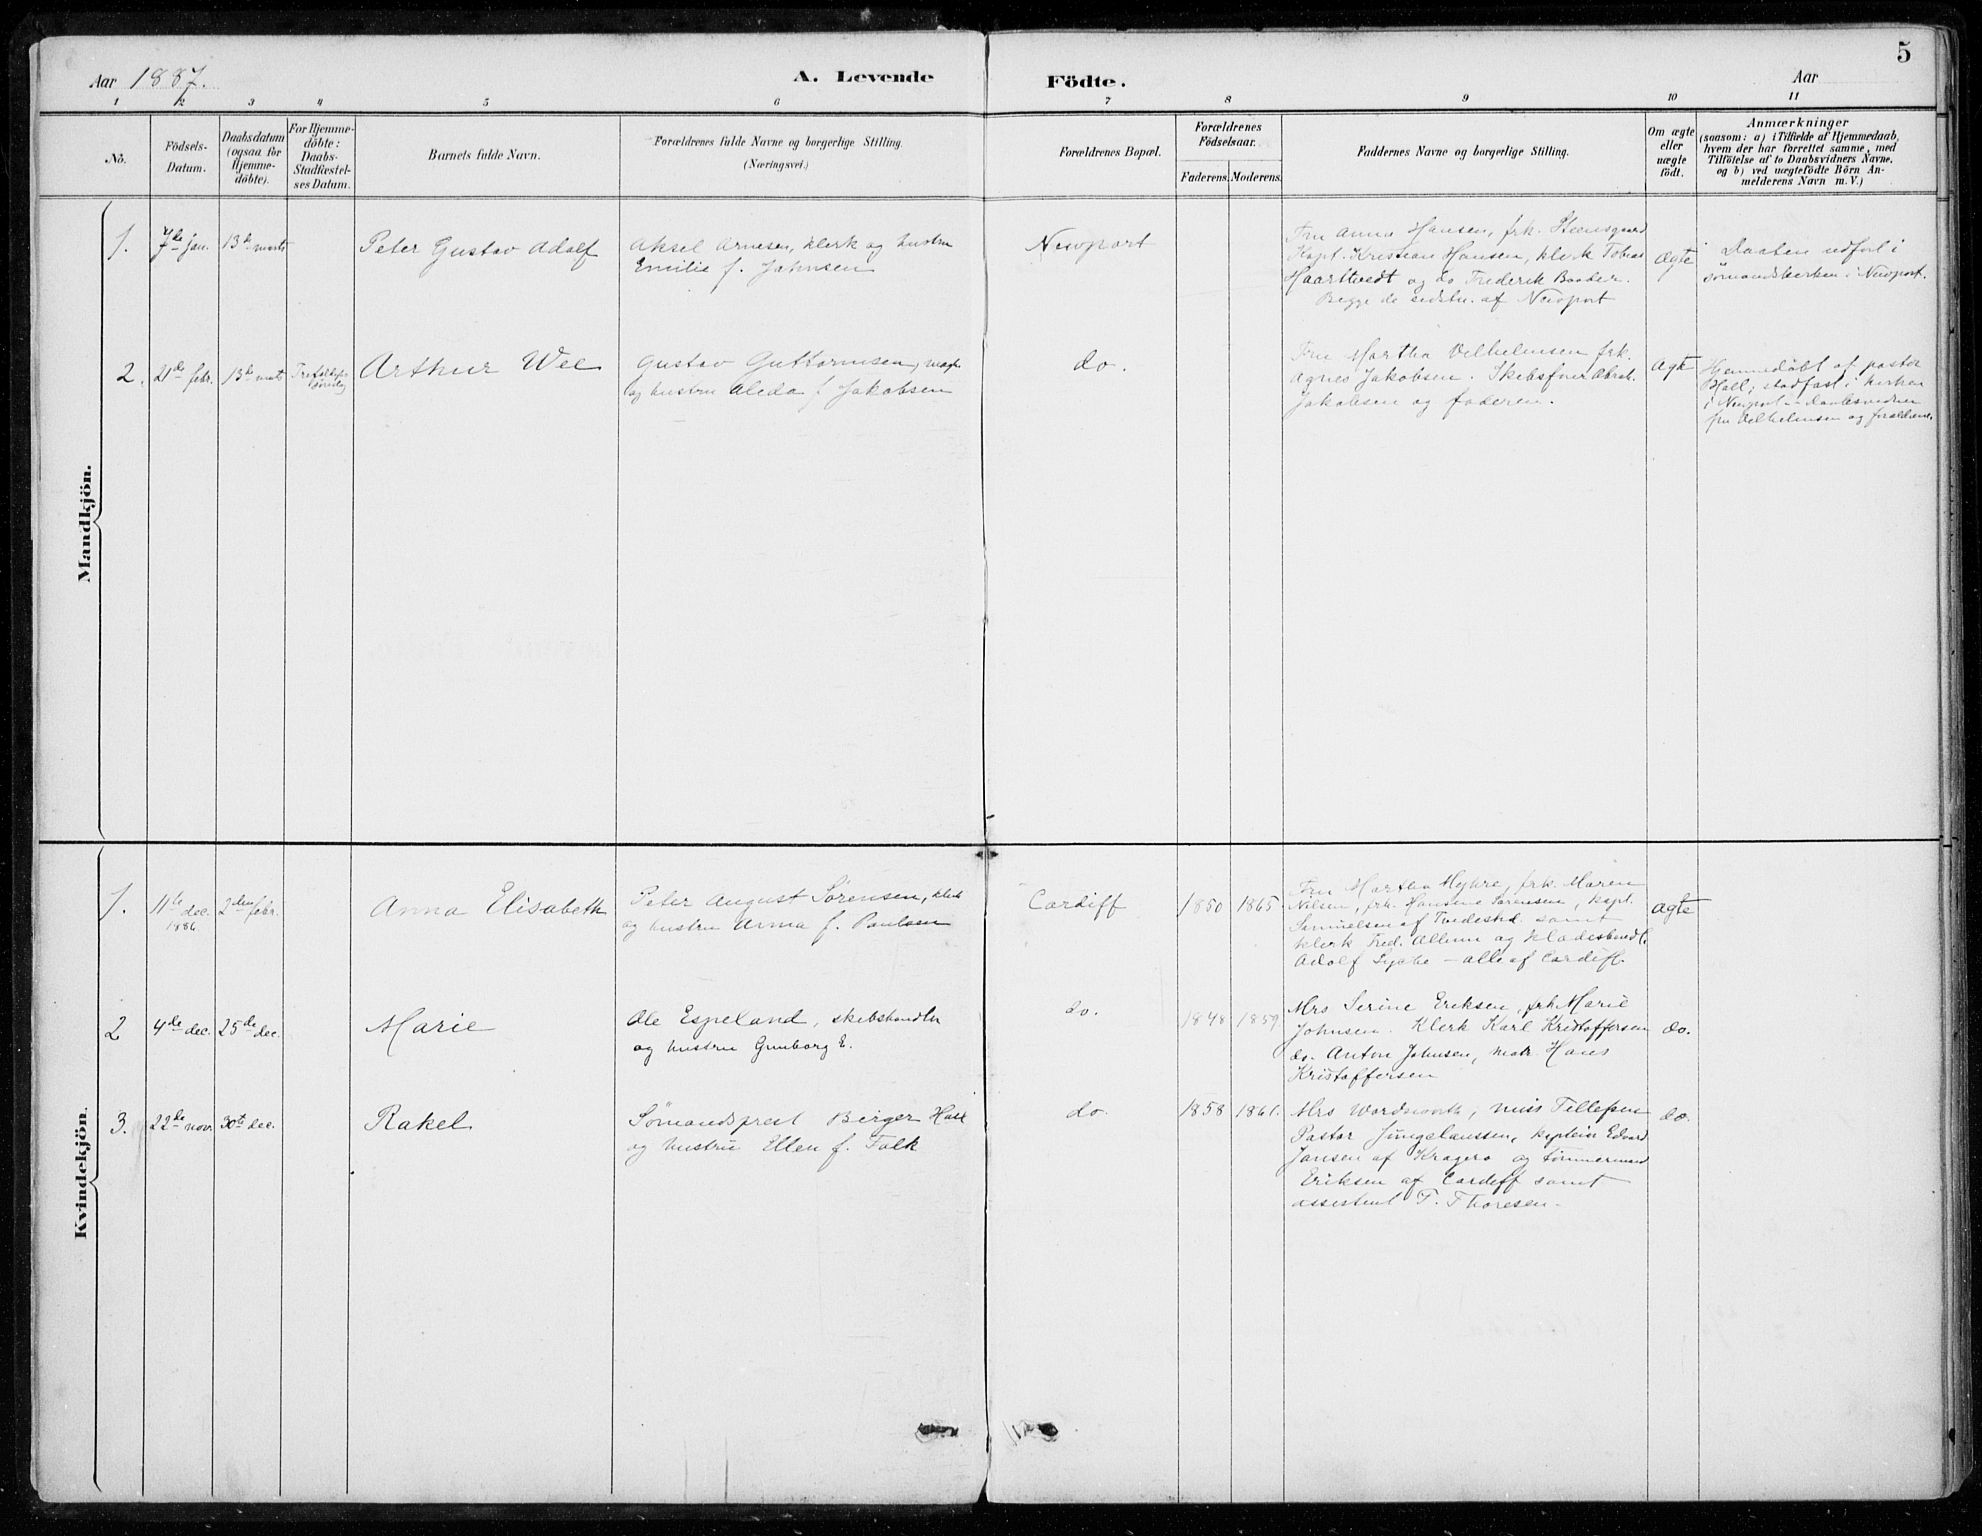 5
Aar 1887.
A. Levende Födte.
Aar
1 2 3 4 5 6 7 8 9 10 11
No.
Födsels-
Datum.
Daabsdatum
(ogsaa for
Hjemme-
döbte).
For Hjemme-
döbte:
Daabs-
Stadfæstel-
ses Datum.
Barnets fulde Navn.
Forældrenes fulde Navne og borgerlige Stilling.
(Næringsvei.)
Forældrenes Bopæl.
Forældrenes
Födselsaar.
Faderens. Moderens.
Faddernes Navne og borgerlige Stilling.
Om ægte
eller
uægte
födt.
Anmærkninger
(saasom: a) i Tilfælde af Hjemmedaab,
hvem der har forrettet samme, med
Tilföielse af to Daabsvidners Navne,
og b) ved uægtefödte Börn An-
melderens Navn m. V.)
Mandkjön.
1.
7de jan.
13de marts
Peter Gustav Adolf
Aksel Arnesen, klerk og hustru
Emilie f. Johnsen
Newport
Fru Anna Hansen, frk. Steensgaard
Kapt. Kristian Hansen, klerk Tobias
Haarttvedt og do Frederik Baader.
Begge de sidstn. af Newport
Ægte
Daaben udfört i
sömandskirken i Newport.
2.
21de febr.
13de marts
Arthur Wee
Gustav Guttormsen,
og hustru Aleda f. Jakobsen
do.
Fru Martha Vilhelmsen frk.
Agnes Jakobsen. Skibsförer Abrah.
Jakobsen og faderen.
Ægt
Hjemmedöbt af pastor
Hall; stadfæst i kirken
i Newport - Daabsvidner
fru Vilhelmsen og forældrene.
Kvindekjön.
1.
11te dec.
1886
2den febr.
Anna Elisabeth
Peter August Sörensen, klerk
og hustru Anna f. Paulsen
Cardiff
1850 1865
Fru Martha Myhre, frk. Maren
Nilsen, frk. Hansine Sörensen, kapt.
Samuelsen af Tvedestrd. samt
klerk Fred. Allum og klædeshandl.
Adolf Lyche - alle af Cardiff.
Ægte
2
4de dec.
25de dec.
Marie
Ole Espeland, skibshandler
og hustru Gunborg E.
do.
1848 1859
Mrs Serine Eriksen, frk. Marie
Johnsen. Klerk Karl Kristoffersen
do. Anton Johnsen, matr. Hans
Kristoffersen
do.
3.
22de novr.
30te dec.
Rakel
Sömandsprest Birger Hall
og hustru Ellen f. Falk
do.
1858 1861.
Mrs Wordsworth, miss Tellefsen
Pastor Jungclaussen, kaptein Edvard
Jansen af Kragerö og tömmermand
Eriksen af Cardiff samt
assistent T. Thoresen.
do.